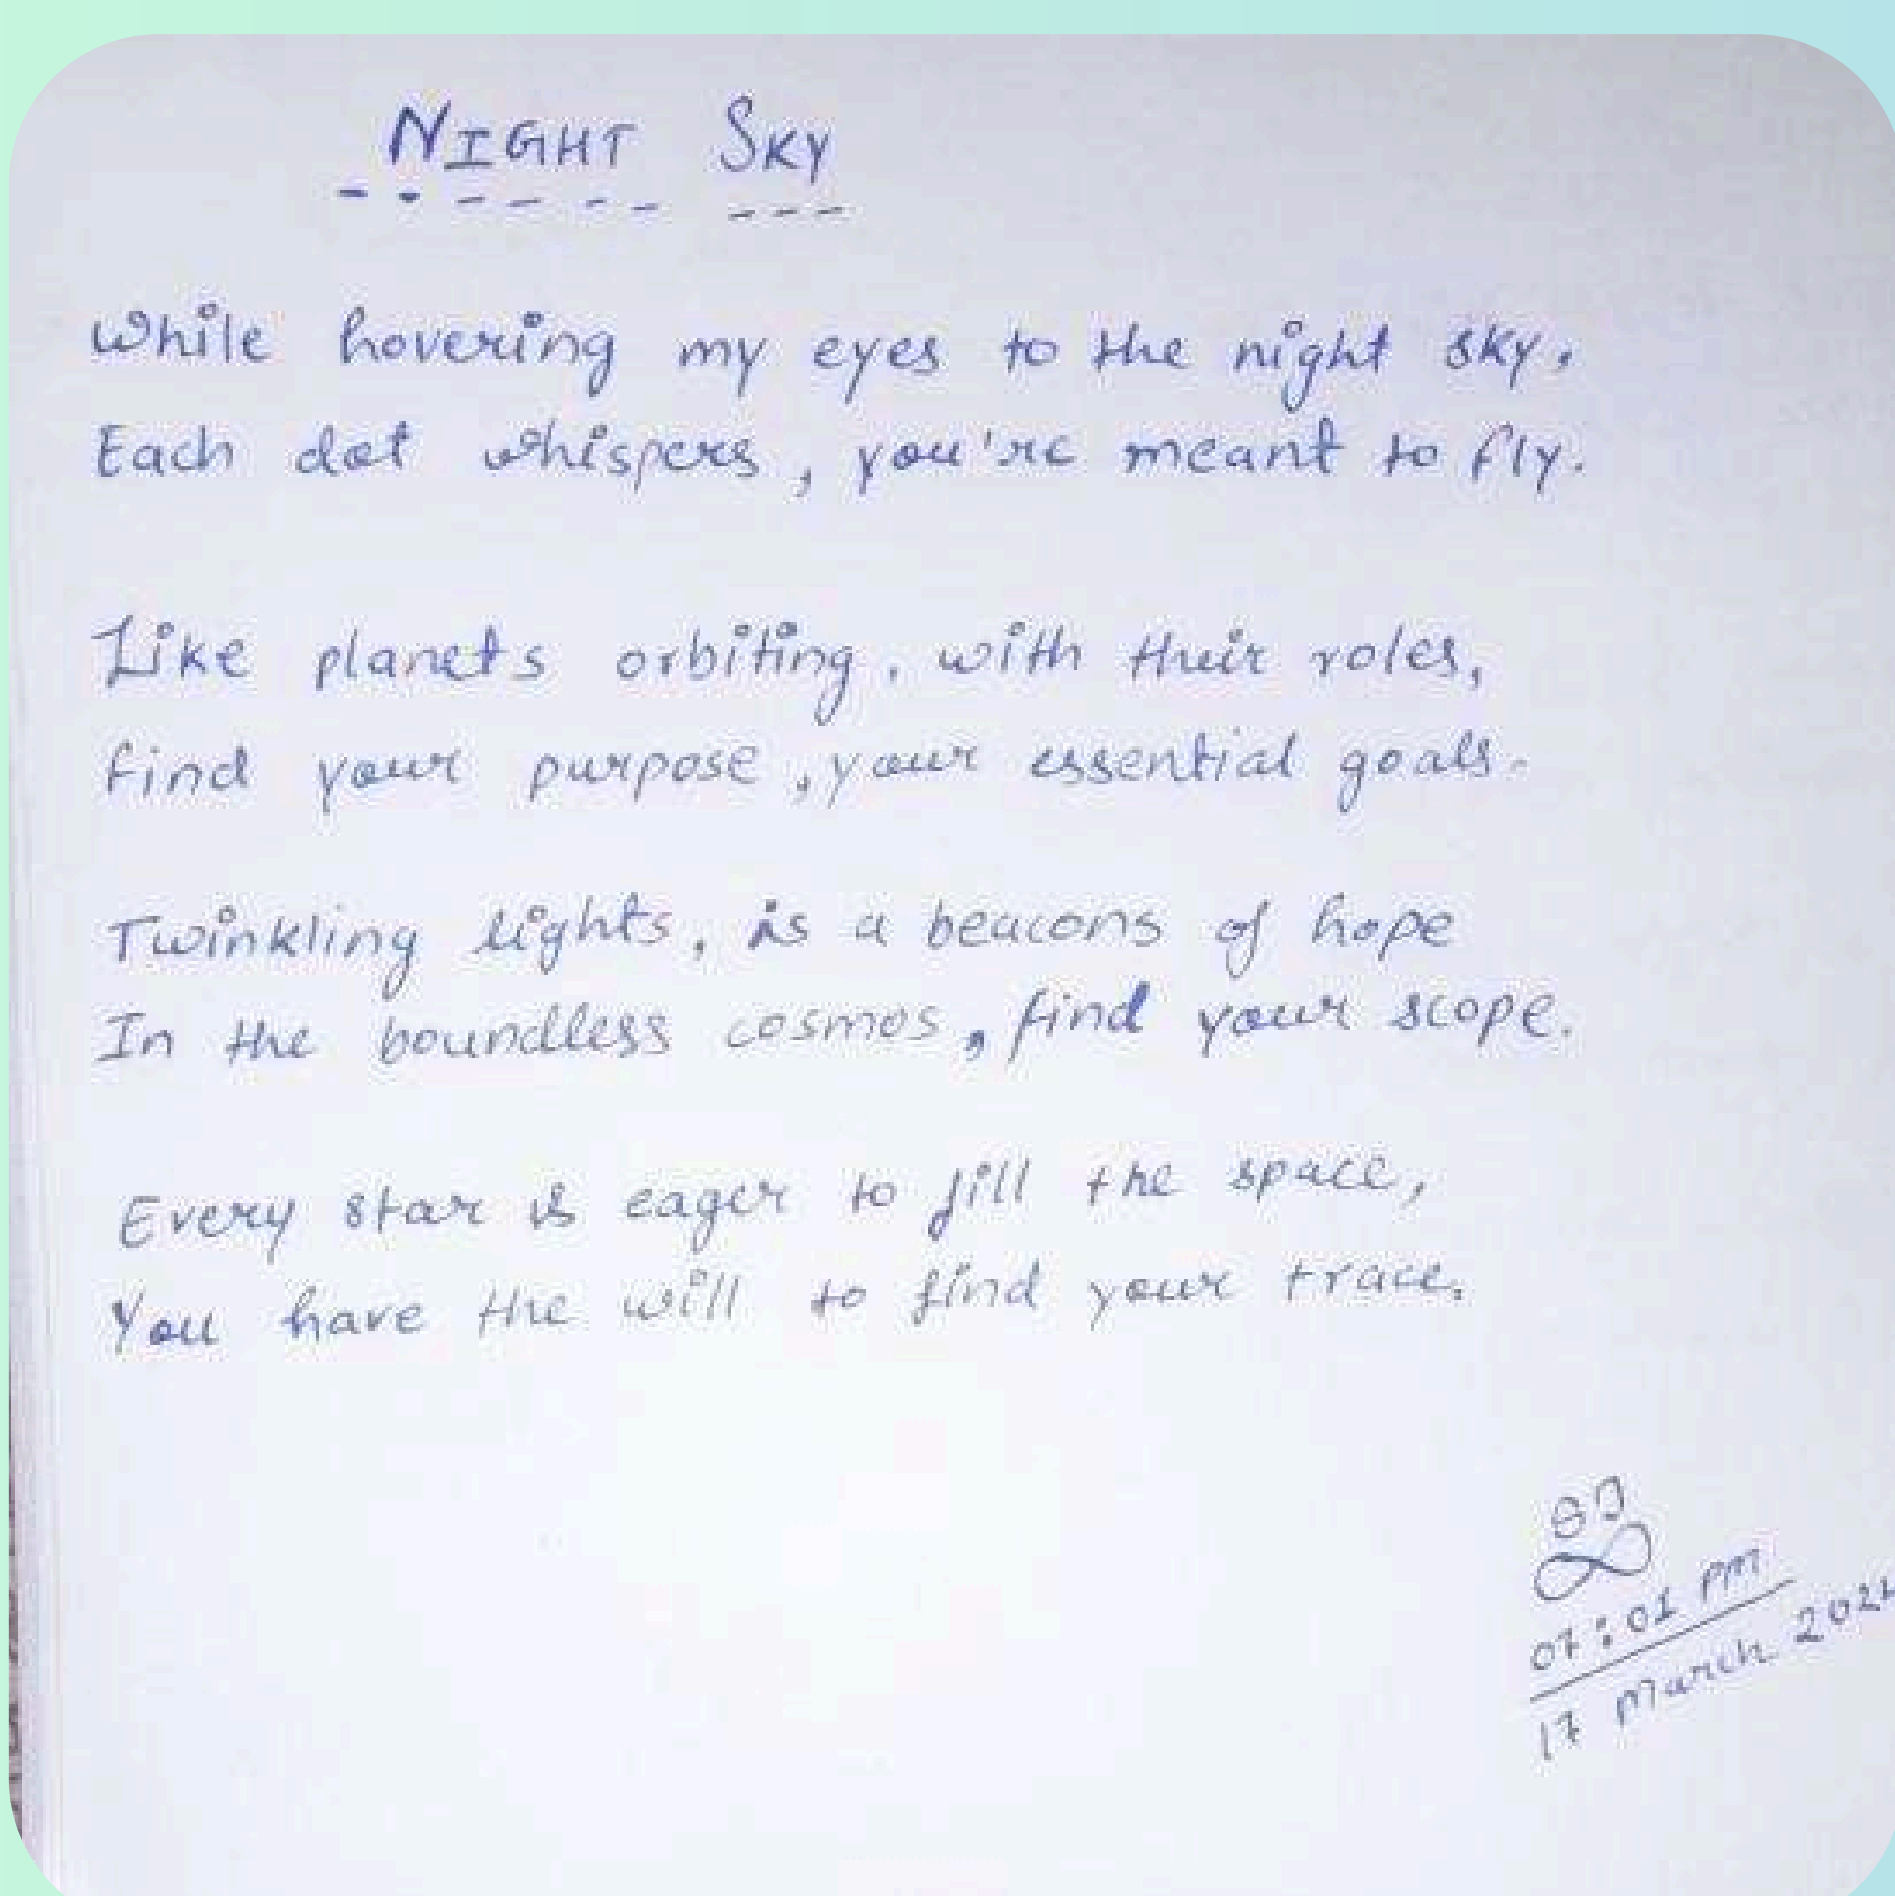 NIGHT SKY
While hovering my eyes to the night sky,
Each dot whispers, you're meant to fly.
Like planets orbiting, with their roles,
find your purpose, your essential goals.
Twinkling lights, is a beacons of hope
In the boundless cosmos, find your scope.
Every star is eager to fill the space,
You have the will to find your trace.
07:01 pm
17 March 2024